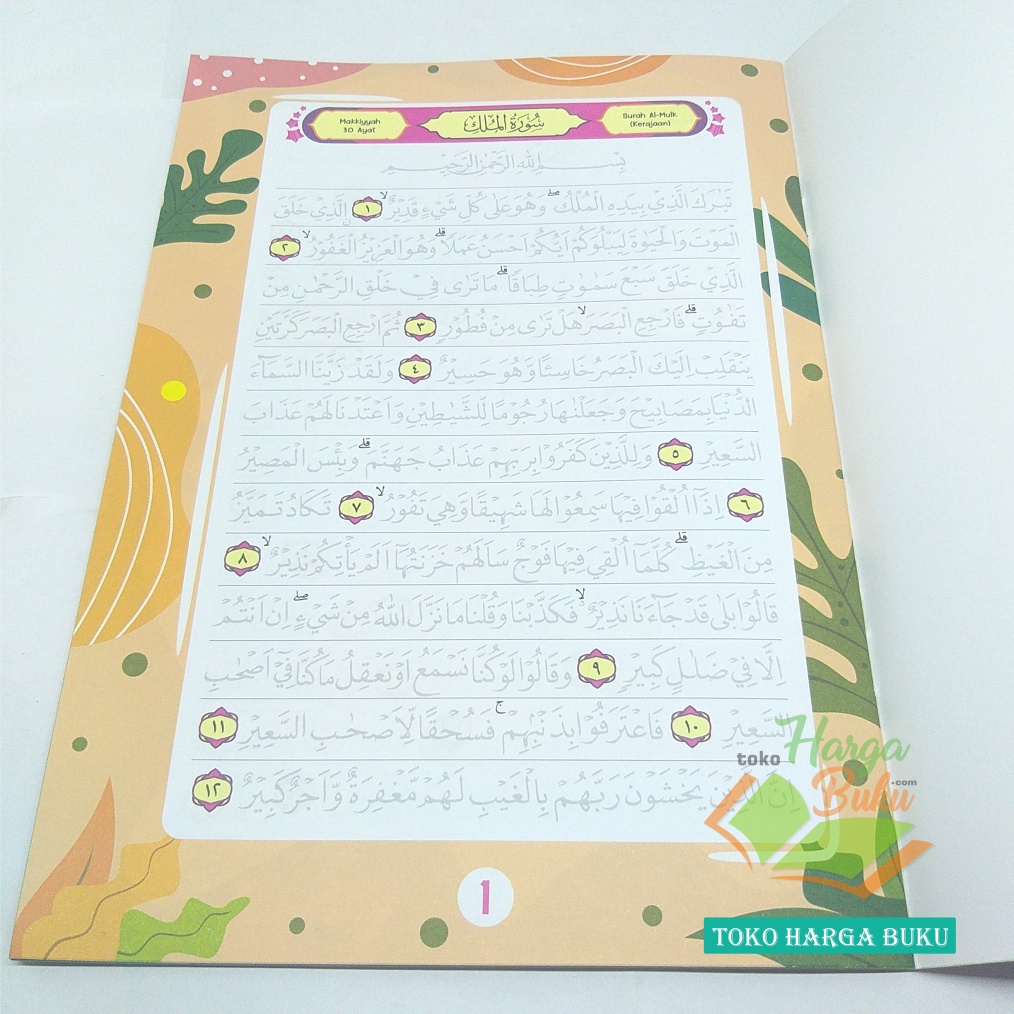 Makkiyyah
30 Ayat
سُوْرَةُ الْمُلْكِ
Surah Al-Mulk
(Kerajaan)
بِسْمِ اللّٰهِ الرَّحْمٰنِ الرَّحِيْمِ
تَبٰرَكَ الَّذِيْ بِيَدِهِ الْمُلْكُۖ وَهُوَ عَلٰى كُلِّ شَيْءٍ قَدِيْرٌۙ ١ ۨالَّذِيْ خَلَقَ
الْمَوْتَ وَالْحَيٰوةَ لِيَبْلُوَكُمْ اَيُّكُمْ اَحْسَنُ عَمَلًاۗ وَهُوَ الْعَزِيْزُ الْغَفُوْرُۙ ٢
الَّذِيْ خَلَقَ سَبْعَ سَمٰوٰتٍ طِبَاقًاۗ مَا تَرٰى فِيْ خَلْقِ الرَّحْمٰنِ مِنْ
تَفٰوُتٍۗ فَارْجِعِ الْبَصَرَۙ هَلْ تَرٰى مِنْ فُطُوْرٍ ٣ ثُمَّ ارْجِعِ الْبَصَرَ كَرَّتَيْنِ
يَنْقَلِبْ اِلَيْكَ الْبَصَرُ خَاسِئًا وَّهُوَ حَسِيْرٌ ٤ وَلَقَدْ زَيَّنَّا السَّمَاۤءَ
الدُّنْيَا بِمَصَابِيْحَ وَجَعَلْنٰهَا رُجُوْمًا لِّلشَّيٰطِيْنِ وَاَعْتَدْنَا لَهُمْ عَذَابَ
السَّعِيْرِ ٥ وَلِلَّذِيْنَ كَفَرُوْا بِرَبِّهِمْ عَذَابُ جَهَنَّمَۗ وَبِئْسَ الْمَصِيْرُ
٦ اِذَآ اُلْقُوْا فِيْهَا سَمِعُوْا لَهَا شَهِيْقًا وَّهِيَ تَفُوْرُۙ ٧ تَكَادُ تَمَيَّزُ
مِنَ الْغَيْظِۗ كُلَّمَآ اُلْقِيَ فِيْهَا فَوْجٌ سَاَلَهُمْ خَزَنَتُهَآ اَلَمْ يَأْتِكُمْ نَذِيْرٌۙ ٨
قَالُوْا بَلٰى قَدْ جَاۤءَنَا نَذِيْرٌ ەۙ فَكَذَّبْنَا وَقُلْنَا مَا نَزَّلَ اللّٰهُ مِنْ شَيْءٍۖ اِنْ اَنْتُمْ
اِلَّا فِيْ ضَلٰلٍ كَبِيْرٍ ٩ وَقَالُوْا لَوْ كُنَّا نَسْمَعُ اَوْ نَعْقِلُ مَا كُنَّا فِيْٓ اَصْحٰبِ
السَّعِيْرِ ١٠ فَاعْتَرَفُوْا بِذَنْۢبِهِمْۚ فَسُحْقًا لِّاَصْحٰبِ السَّعِيْرِ ١١
اِنَّ الَّذِيْنَ يَخْشَوْنَ رَبَّهُمْ بِالْغَيْبِ لَهُمْ مَّغْفِرَةٌ وَّاَجْرٌ كَبِيْرٌ ١٢
1
toko Harga
Buku.com
TOKO HARGA BUKU